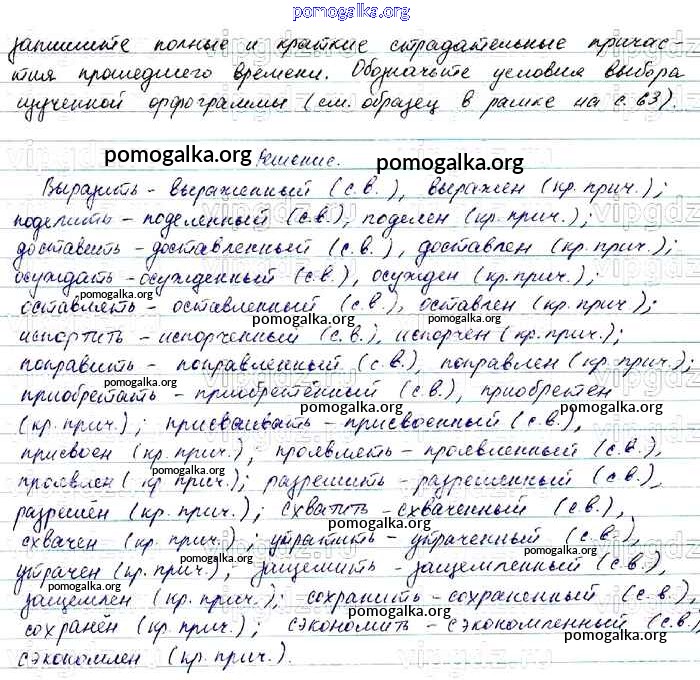 pomogalka.org
запишите полные и краткие страдательные причас-
тия прошедшего времени. Обозначьте условия выбора
изученной орфограммы (см. образец в рамке на с. 63).
pomogalka.org Решение. pomogalka.org
Выразить - выраженный (с.в.), выражен (кр. прич.);
поделить - поделенный (с.в.), поделен (кр. прич.);
доставить - доставленный (с.в.), доставлен (кр. прич.);
осуждать - осужденный (с.в.), осужден (кр. прич.);
pomogalka.org
оставлять - оставленный (с.в.), оставлен (кр. прич);
pomogalka.org pomogalka.org
испортить - испорченный (с.в.), испорчен (кр. прич.);
поправить - поправленный (с.в.), поправлен (кр. прич.);
pomogalka.org
приобретать - приобретённый (с.в.), приобретен
pomogalka.org pomogalka.org
(кр. прич.); присваивать - присвоенный (с.в.),
присвоен (кр. прич.); проявлять - проявленный (с.в.),
pomogalka.org
проявлен (кр прич.); разрешить - разрешенный (с.в.),
разрешён (кр. прич.); схватить - схваченный (с.в.),
pomogalka.org pomogalka.org
схвачен (кр. прич.); утратить - утраченный (с.в.),
pomogalka.org
утрачен (кр. прич.); защемить - защемленный (с.в.),
pomogalka.org
защемлен (кр. прич.); сохранить - сохраненный (с.в.),
pomogalka.org
сохранён (кр. прич.); сэкономить - сэкономленный (с.в.)
pomogalka.org
сэкономлен (кр. прич.).
vipgdz.ru